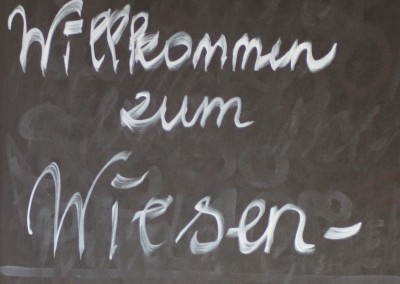 Willkommen
zum
Wiesen-